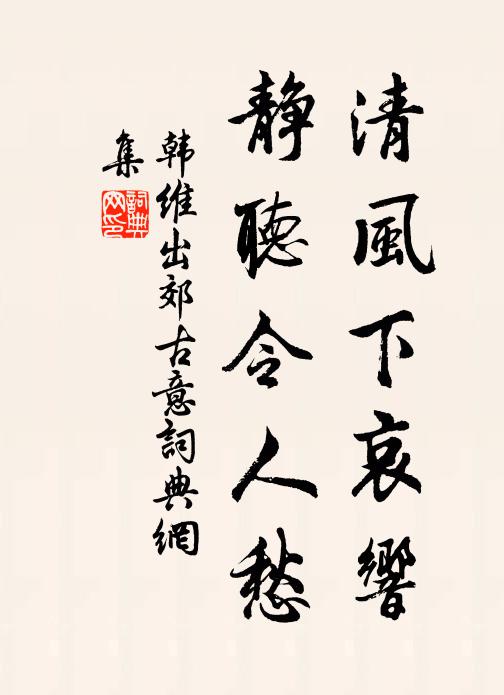 清風下哀響
靜聽令人愁
韩維出郊古意詞典網
集
詞典
网印